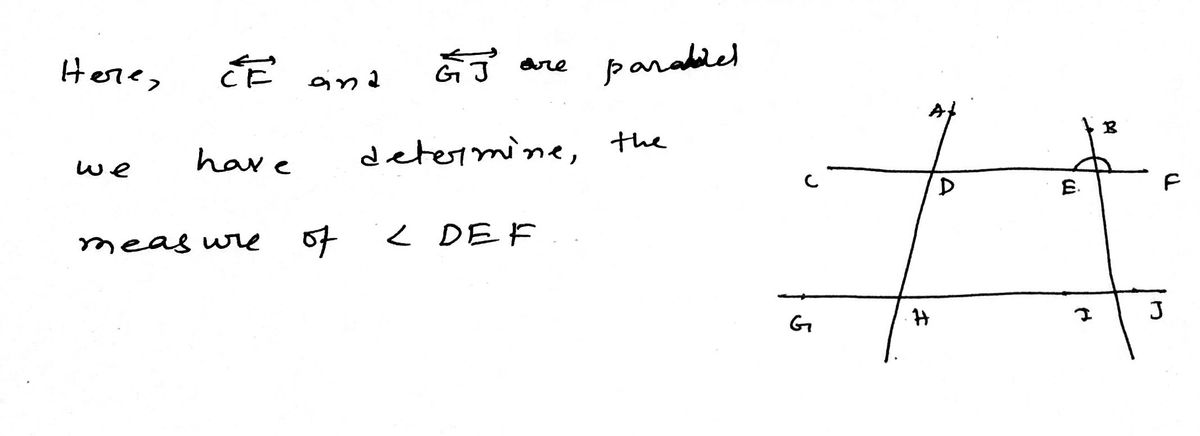 Here, CE and GJ are parallel
we have determine, the
measure of < DEF
A
B
C
D
E
F
G
H
I
J